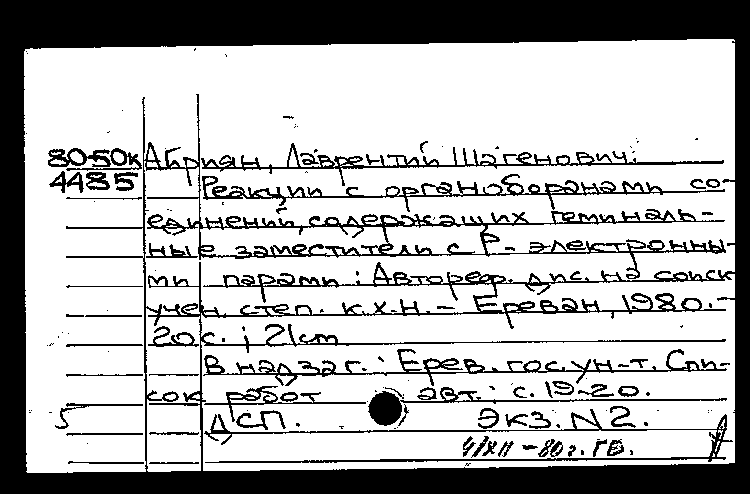 80-50к Абриян, Лаврентий Шагенович.
4485 Реакции с органоборанами со-
единений, содержащих геминаль-
ные заместители с P- электронны-
ми парами : Автореф. дис. на соиск
учен. степ. к.х.н. - Ереван, 1980. -
20 с. ; 21 cm
В надзаг. : Ерев. гос. ун-т. Спи-
сок работ авт. : с. 19-20.
5 ДСП. Экз. N 2.
4/XII - 80 г. ГБ.